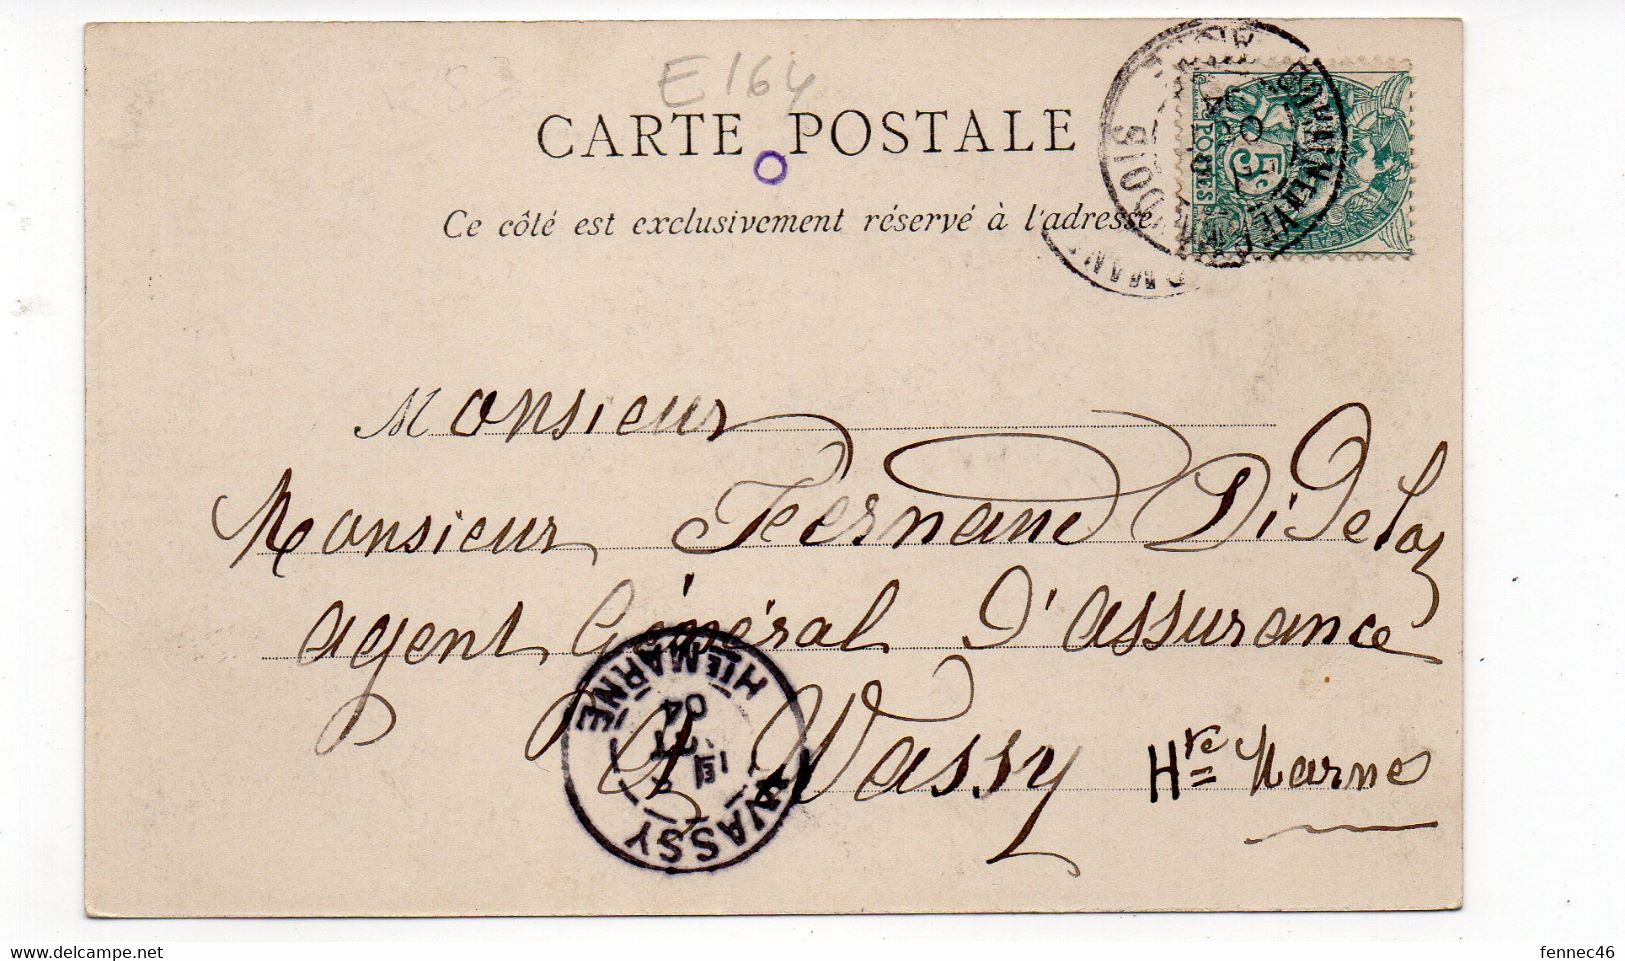 E 164
CARTE POSTALE
Ce côté est exclusivement réservé à l'adresse
5c
POSTES
Monsieur
Monsieur Fernand Didelot
agent Général d'assurance
A Wassy Hte Marne
WASSY
HTE MARNE
04
fennec46